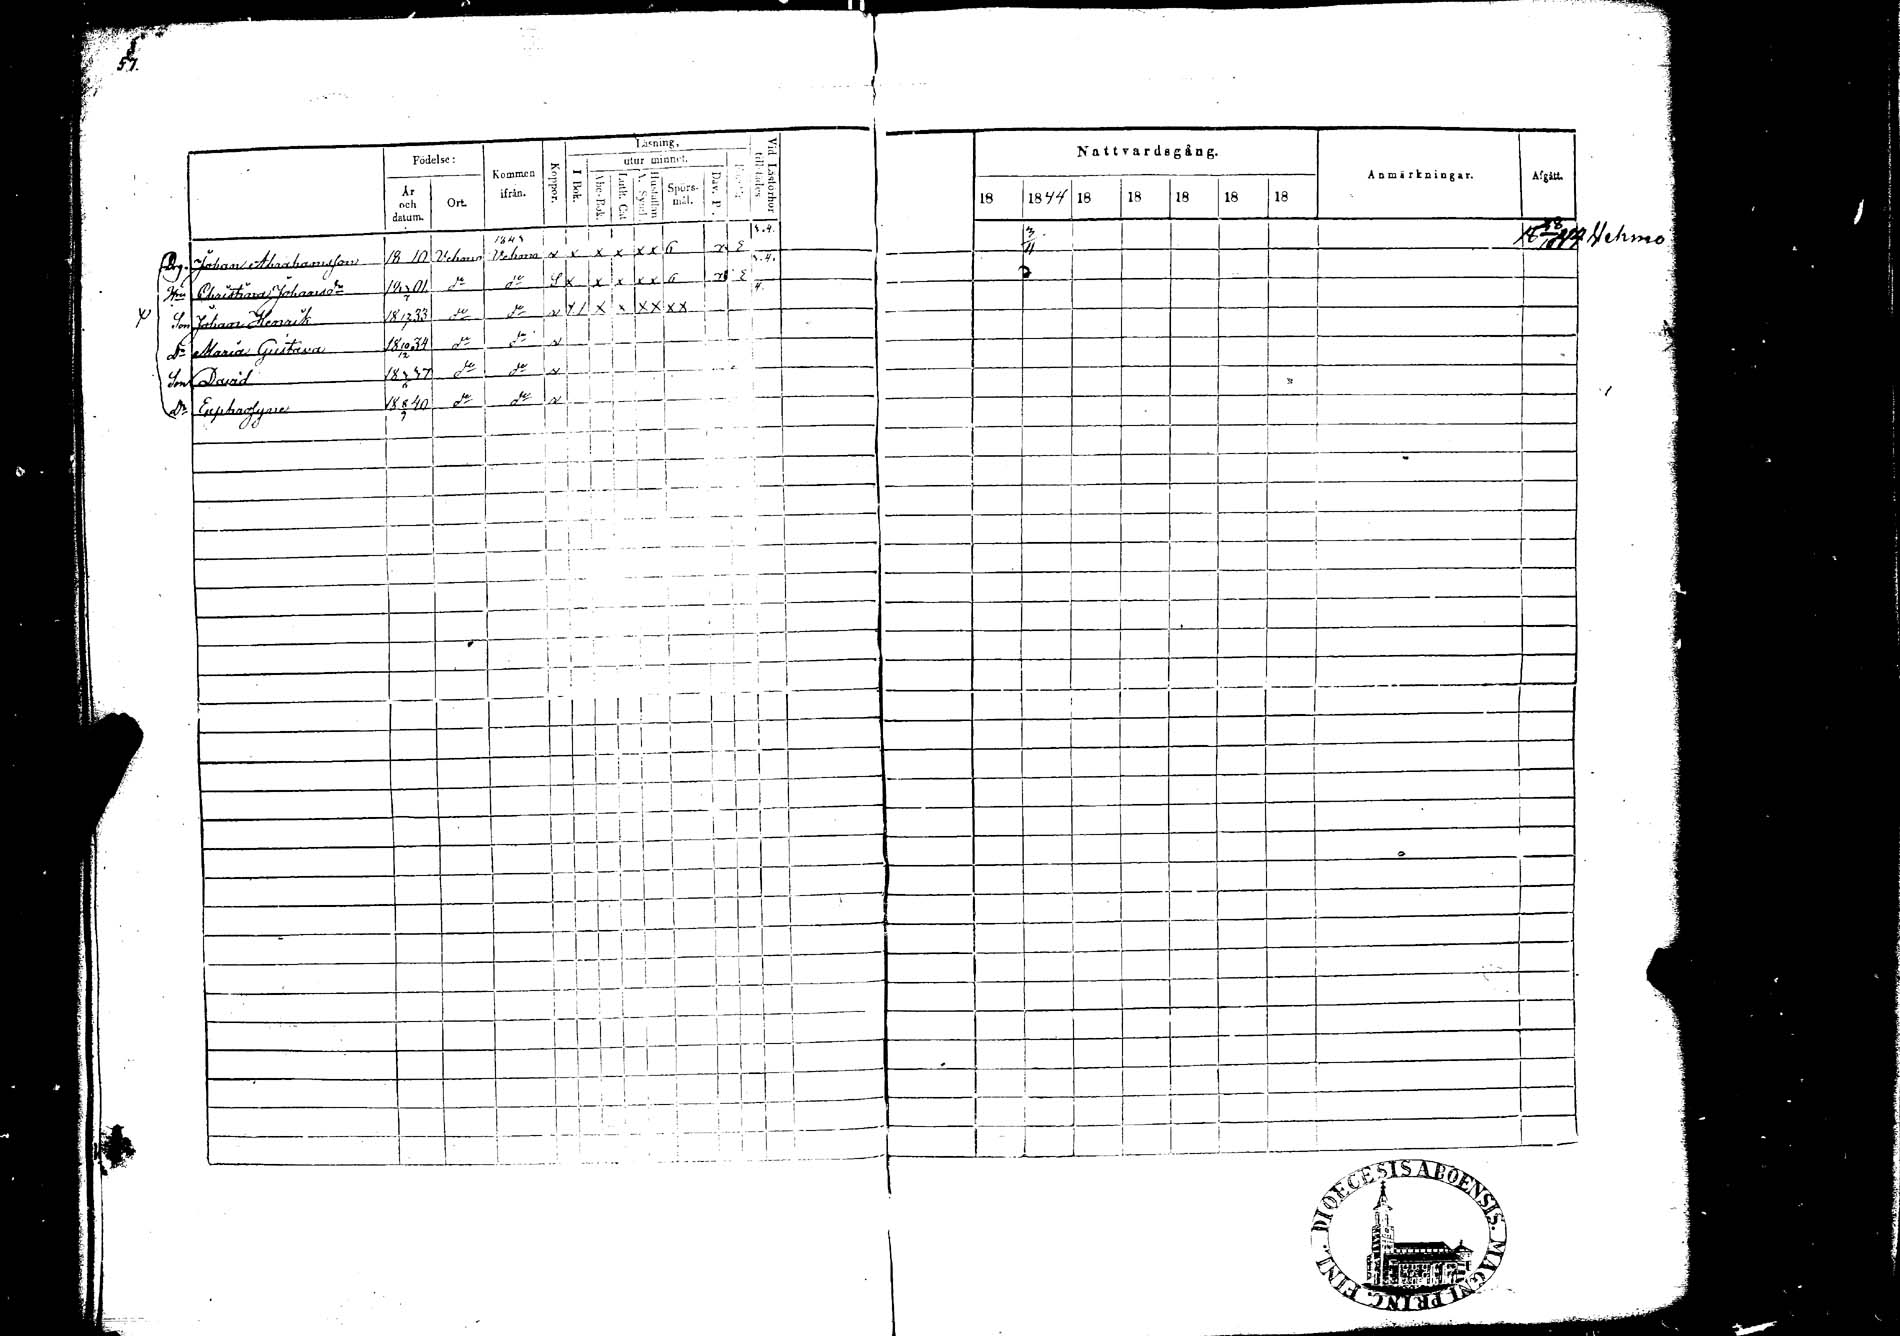 57.
Födelse:
År och datum.
Ort.
Kommen ifrån.
Koppor.
Läsning,
utur minnet.
I Bok.
Abc-Bok.
Luth. Cat
Hustaflan
A. Symb
Spörsmål.
Dav. P.
Vid Läsförhör tillstädes
Nattvardsgång.
18 1844 18 18 18 18 18
Anmärkningar.
Afgått.
1843
Drg. Johan Abrahamsson 18 10 Vehmo Vehmo x x x x x x 6 x
Hu Christina Johansdr 01 do do S x x x x x 6
Son Johan Henrik 18 33 do do x x x x x x x
Dr Maria Gustava 18 10/12 34 do do x
Son David 18 37 do do x
Dr Euphrosyne 18 8/7 40 do do x
3/11
Vehmo
DIOECESIS ABOENSIS. MAGNI PRINC. FINL.